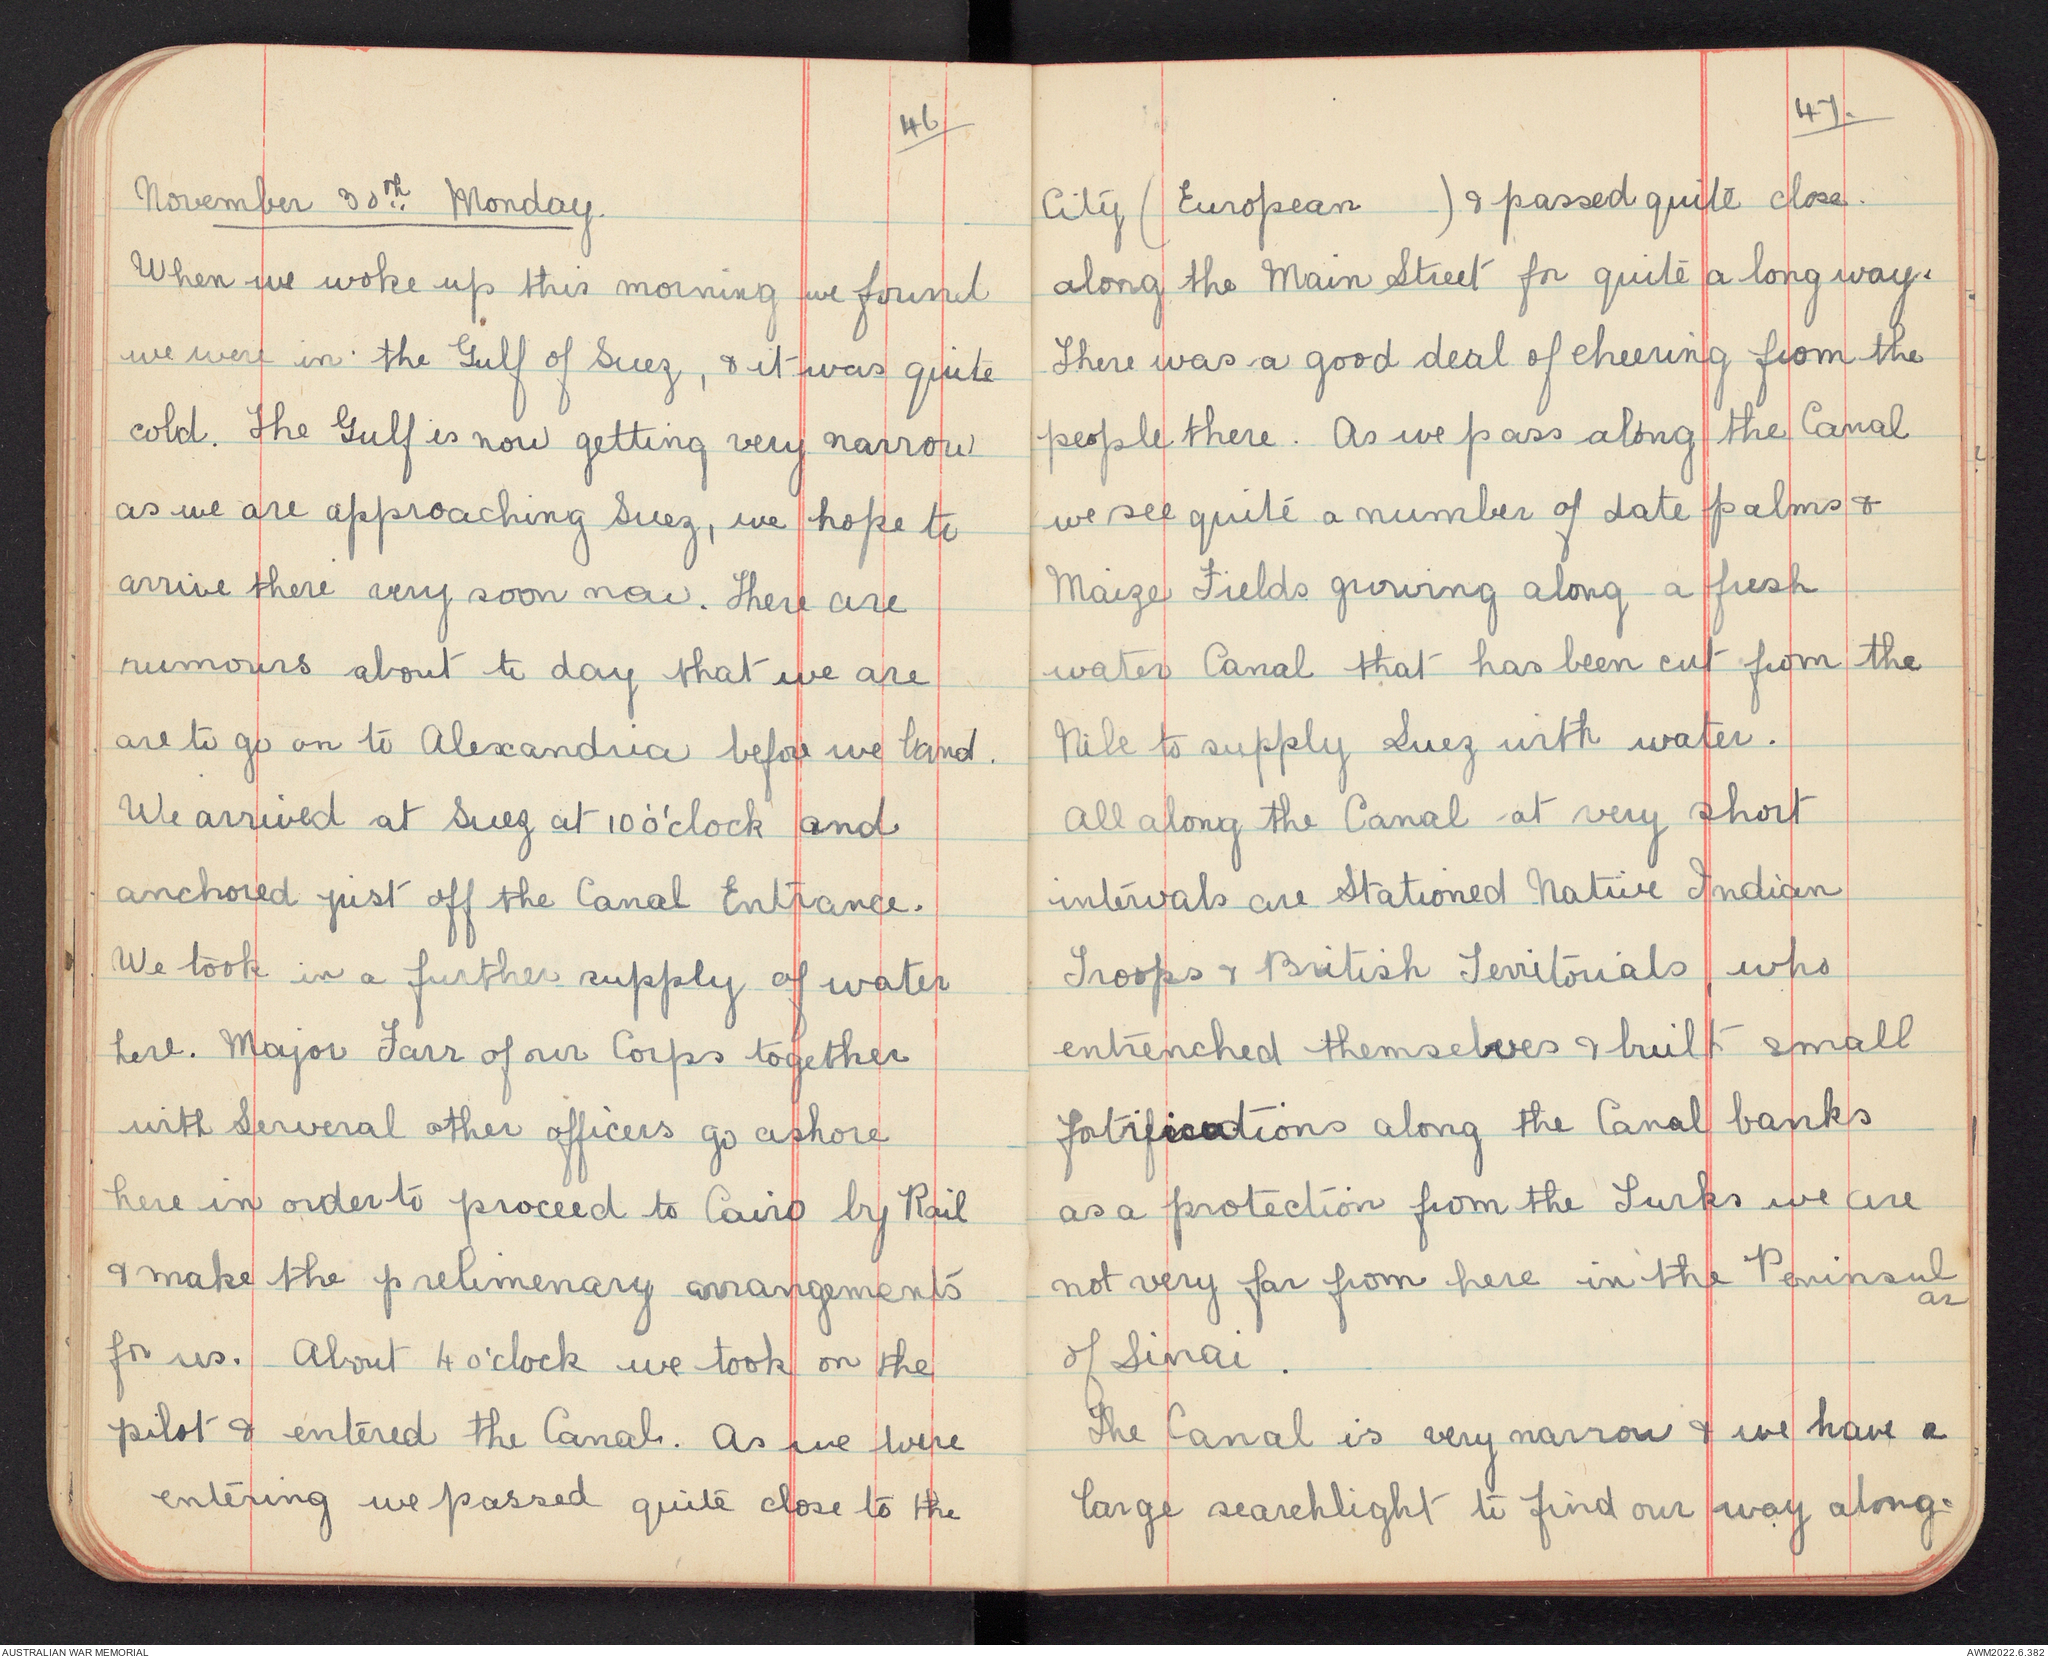 46
November 30th Monday.
When we woke up this morning we found
we were in the Gulf of Suez, & it was quite
cold. The Gulf is now getting very narrow
as we are approaching Suez, we hope to
arrive there very soon now. There are
rumours about to day that we are
are to go on to Alexandria before we land.
We arrived at Suez at 10 o'clock and
anchored just off the Canal Entrance.
We took in a further supply of water
here. Major Farr of our Corps together
with Serveral other officers go ashore
here in order to proceed to Cairo by Rail
& make the prelimenary arrangements
for us. About 4 o'clock we took on the
pilot & entered the Canal. As we were
entering we passed quite close to the
47.
City (European ) & passed quite close.
along the Main Street for quite a long way.
There was a good deal of cheering from the
people there. As we pass along the Canal
we see quite a number of date palms &
Maize Fields growing along a fresh
water Canal that has been cut from the
Nile to supply Suez with water.
All along the Canal at very short
intervals are Stationed Native Indian
Troops & British Territorials, who
entrenched themselves & built small
fotifications along the Canal banks
as a protection from the Turks we are
not very far from here in the Peninsul
ar
of Sinai.
The Canal is very narrow & we have a
large searchlight to find our way along.
AUSTRALIAN WAR MEMORIAL
AWM2022.6.382